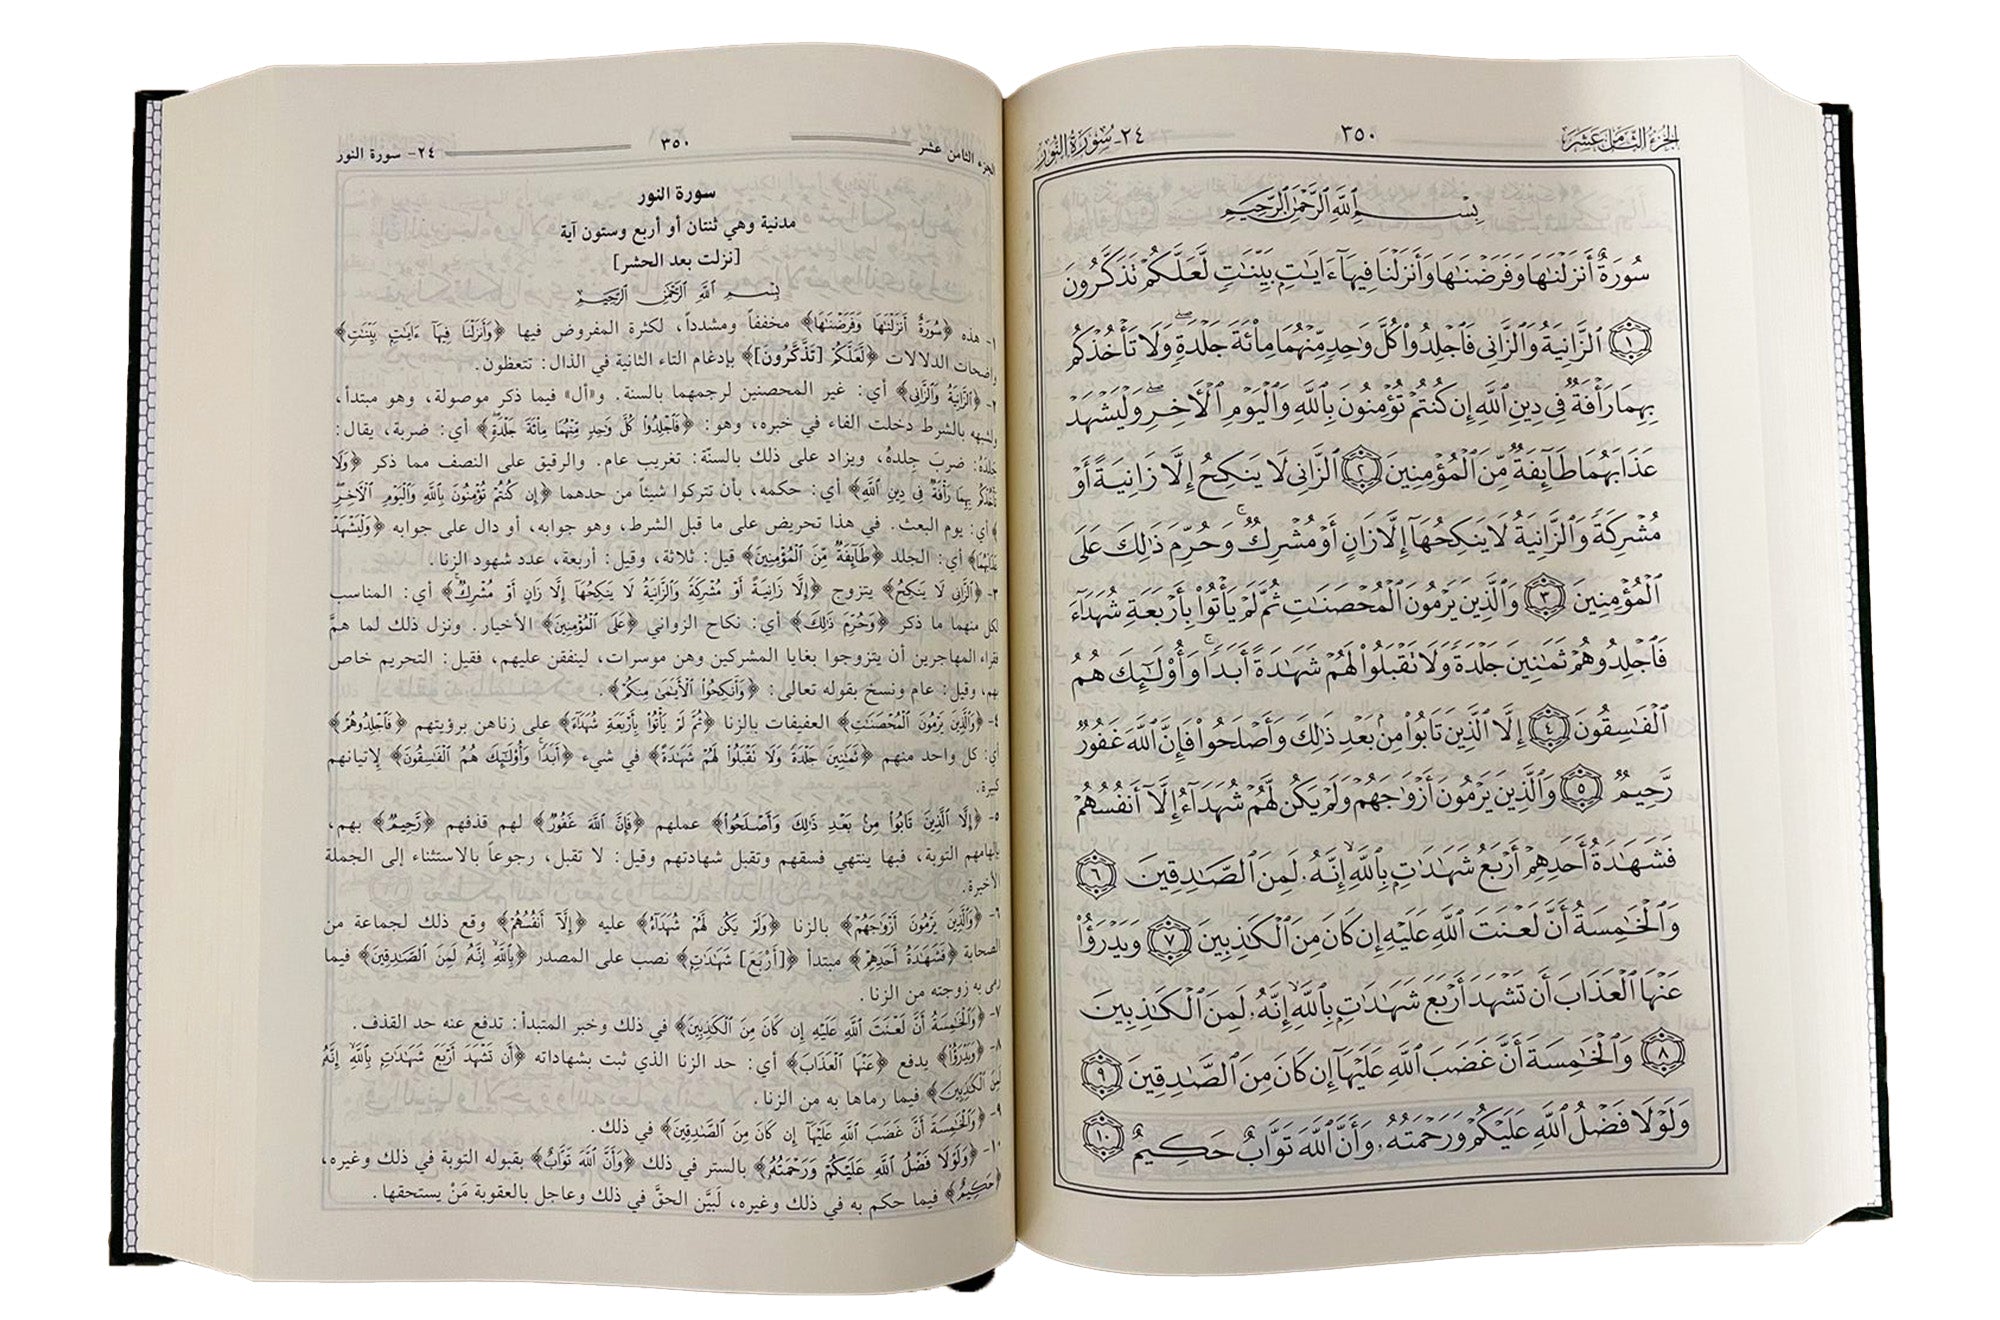 الجزء الثامن عشر
٣٥٠
٢٤- سورة النور
بِسْمِ اللَّهِ الرَّحْمَٰنِ الرَّحِيمِ
سُورَةٌ أَنزَلْنَٰهَا وَفَرَضْنَٰهَا وَأَنزَلْنَا فِيهَآ ءَايَٰتٍۭ بَيِّنَٰتٍ لَّعَلَّكُمْ تَذَكَّرُونَ
١ ٱلزَّانِيَةُ وَٱلزَّانِى فَٱجْلِدُوا۟ كُلَّ وَٰحِدٍ مِّنْهُمَا مِا۟ئَةَ جَلْدَةٍ ۖ وَلَا تَأْخُذْكُم
بِهِمَا رَأْفَةٌ فِى دِينِ ٱللَّهِ إِن كُنتُمْ تُؤْمِنُونَ بِٱللَّهِ وَٱلْيَوْمِ ٱلْـَٔاخِرِ ۖ وَلْيَشْهَدْ
عَذَابَهُمَا طَآئِفَةٌ مِّنَ ٱلْمُؤْمِنِينَ ٢ ٱلزَّانِى لَا يَنكِحُ إِلَّا زَانِيَةً أَوْ
مُشْرِكَةً وَٱلزَّانِيَةُ لَا يَنكِحُهَآ إِلَّا زَانٍ أَوْ مُشْرِكٌ ۚ وَحُرِّمَ ذَٰلِكَ عَلَى
ٱلْمُؤْمِنِينَ ٣ وَٱلَّذِينَ يَرْمُونَ ٱلْمُحْصَنَٰتِ ثُمَّ لَمْ يَأْتُوا۟ بِأَرْبَعَةِ شُهَدَآءَ
فَٱجْلِدُوهُمْ ثَمَٰنِينَ جَلْدَةً وَلَا تَقْبَلُوا۟ لَهُمْ شَهَٰدَةً أَبَدًا ۚ وَأُو۟لَٰٓئِكَ هُمُ
ٱلْفَٰسِقُونَ ٤ إِلَّا ٱلَّذِينَ تَابُوا۟ مِنۢ بَعْدِ ذَٰلِكَ وَأَصْلَحُوا۟ فَإِنَّ ٱللَّهَ غَفُورٌ
رَّحِيمٌ ٥ وَٱلَّذِينَ يَرْمُونَ أَزْوَٰجَهُمْ وَلَمْ يَكُن لَّهُمْ شُهَدَآءُ إِلَّآ أَنفُسُهُمْ
فَشَهَٰدَةُ أَحَدِهِمْ أَرْبَعُ شَهَٰدَٰتٍۭ بِٱللَّهِ ۙ إِنَّهُۥ لَمِنَ ٱلصَّٰدِقِينَ ٦
وَٱلْخَٰمِسَةُ أَنَّ لَعْنَتَ ٱللَّهِ عَلَيْهِ إِن كَانَ مِنَ ٱلْكَٰذِبِينَ ٧ وَيَدْرَؤُا۟
عَنْهَا ٱلْعَذَابَ أَن تَشْهَدَ أَرْبَعَ شَهَٰدَٰتٍۭ بِٱللَّهِ ۙ إِنَّهُۥ لَمِنَ ٱلْكَٰذِبِينَ
٨ وَٱلْخَٰمِسَةَ أَنَّ غَضَبَ ٱللَّهِ عَلَيْهَآ إِن كَانَ مِنَ ٱلصَّٰدِقِينَ ٩
وَلَوْلَا فَضْلُ ٱللَّهِ عَلَيْكُمْ وَرَحْمَتُهُۥ وَأَنَّ ٱللَّهَ تَوَّابٌ حَكِيمٌ ١٠
الجزء الثامن عشر
٣٥٠
٢٤- سورة النور
سورة النور
مدنية وهي ثنتان أو أربع وستون آية
[نزلت بعد الحشر]
بِسْمِ اللَّهِ الرَّحْمَٰنِ الرَّحِيمِ
١- هذه ﴿سُورَةٌ أَنزَلْنَٰهَا وَفَرَضْنَٰهَا﴾ مخففاً ومشدداً، لكثرة المفروض فيها ﴿وَأَنزَلْنَا فِيهَآ ءَايَٰتٍ بَيِّنَٰتٍ﴾
واضحات الدلالات ﴿لَّعَلَّكُمْ [تَذَّكَّرُونَ]﴾ بإدغام التاء الثانية في الذال: تتعظون.
٢- ﴿ٱلزَّانِيَةُ وَٱلزَّانِى﴾ أي: غير المحصنين لرجمهما بالسنة. و«أل» فيما ذكر موصولة، وهو مبتدأ،
ولشبهه بالشرط دخلت الفاء في خبره، وهو: ﴿فَٱجْلِدُوا۟ كُلَّ وَٰحِدٍ مِّنْهُمَا مِا۟ئَةَ جَلْدَةٍ﴾ أي: ضربة، يقال:
جَلَدَهُ: ضربَ جِلدهُ، ويزاد على ذلك بالسنّة: تغريب عام. والرقيق على النصف مما ذكر ﴿وَلَا
تَأْخُذْكُم بِهِمَا رَأْفَةٌ فِى دِينِ ٱللَّهِ﴾ أي: حكمه، بأن تتركوا شيئاً من حدهما ﴿إِن كُنتُمْ تُؤْمِنُونَ بِٱللَّهِ وَٱلْيَوْمِ ٱلْـَٔاخِرِ
﴾ أي: يوم البعث. في هذا تحريض على ما قبل الشرط، وهو جوابه، أو دال على جوابه ﴿وَلْيَشْهَدْ
عَذَابَهُمَا﴾ أي: الجلد ﴿طَآئِفَةٌ مِّنَ ٱلْمُؤْمِنِينَ﴾ قيل: ثلاثة، وقيل: أربعة، عدد شهود الزنا.
٣- ﴿ٱلزَّانِى لَا يَنكِحُ﴾ يتزوج ﴿إِلَّا زَانِيَةً أَوْ مُشْرِكَةً وَٱلزَّانِيَةُ لَا يَنكِحُهَآ إِلَّا زَانٍ أَوْ مُشْرِكٌ﴾ أي: المناسب
لكل منهما ما ذكر ﴿وَحُرِّمَ ذَٰلِكَ﴾ أي: نكاح الزواني ﴿عَلَى ٱلْمُؤْمِنِينَ﴾ الأخيار. ونزل ذلك لما همَّ
فقراء المهاجرين أن يتزوجوا بغايا المشركين وهن موسرات، لينفقن عليهم، فقيل: التحريم خاص
بهم، وقيل: عام ونسخ بقوله تعالى: ﴿وَأَنكِحُوا۟ ٱلْأَيَٰمَىٰ مِنكُمْ﴾.
٤- ﴿وَٱلَّذِينَ يَرْمُونَ ٱلْمُحْصَنَٰتِ﴾ العفيفات بالزنا ﴿ثُمَّ لَمْ يَأْتُوا۟ بِأَرْبَعَةِ شُهَدَآءَ﴾ على زناهن برؤيتهم ﴿فَٱجْلِدُوهُمْ﴾
أي: كل واحد منهم ﴿ثَمَٰنِينَ جَلْدَةً وَلَا تَقْبَلُوا۟ لَهُمْ شَهَٰدَةً﴾ في شيء ﴿أَبَدًا ۚ وَأُو۟لَٰٓئِكَ هُمُ ٱلْفَٰسِقُونَ﴾ لإتيانهم
كبيرة.
٥- ﴿إِلَّا ٱلَّذِينَ تَابُوا۟ مِنۢ بَعْدِ ذَٰلِكَ وَأَصْلَحُوا۟﴾ عملهم ﴿فَإِنَّ ٱللَّهَ غَفُورٌ﴾ لهم قذفهم ﴿رَّحِيمٌ﴾ بهم،
بإلهامهم التوبة، فبها ينتهي فسقهم وتقبل شهادتهم وقيل: لا تقبل، رجوعاً بالاستثناء إلى الجملة
الأخيرة.
٦- ﴿وَٱلَّذِينَ يَرْمُونَ أَزْوَٰجَهُمْ﴾ بالزنا ﴿وَلَمْ يَكُن لَّهُمْ شُهَدَآءُ﴾ عليه ﴿إِلَّآ أَنفُسُهُمْ﴾ وقع ذلك لجماعة من
الصحابة ﴿فَشَهَٰدَةُ أَحَدِهِمْ﴾ مبتدأ ﴿[أَرْبَعَ] شَهَٰدَٰتٍ﴾ نصب على المصدر ﴿بِٱللَّهِ ۙ إِنَّهُۥ لَمِنَ ٱلصَّٰدِقِينَ﴾ فيما
رمى به زوجته من الزنا.
٧- ﴿وَٱلْخَٰمِسَةُ أَنَّ لَعْنَتَ ٱللَّهِ عَلَيْهِ إِن كَانَ مِنَ ٱلْكَٰذِبِينَ﴾ في ذلك وخبر المبتدأ: تدفع عنه حد القذف.
٨- ﴿وَيَدْرَؤُا۟﴾ يدفع ﴿عَنْهَا ٱلْعَذَابَ﴾ أي: حد الزنا الذي ثبت بشهاداته ﴿أَن تَشْهَدَ أَرْبَعَ شَهَٰدَٰتٍۭ بِٱللَّهِ ۙ إِنَّهُۥ
لَمِنَ ٱلْكَٰذِبِينَ﴾ فيما رماها به من الزنا.
٩- ﴿وَٱلْخَٰمِسَةَ أَنَّ غَضَبَ ٱللَّهِ عَلَيْهَآ إِن كَانَ مِنَ ٱلصَّٰدِقِينَ﴾ في ذلك.
١٠- ﴿وَلَوْلَا فَضْلُ ٱللَّهِ عَلَيْكُمْ وَرَحْمَتُهُۥ﴾ بالستر في ذلك ﴿وَأَنَّ ٱللَّهَ تَوَّابٌ﴾ بقبوله التوبة في ذلك وغيره،
﴿حَكِيمٌ﴾ فيما حكم به في ذلك وغيره، لَبيَّن الحقَّ في ذلك وعاجل بالعقوبة مَنْ يستحقها.